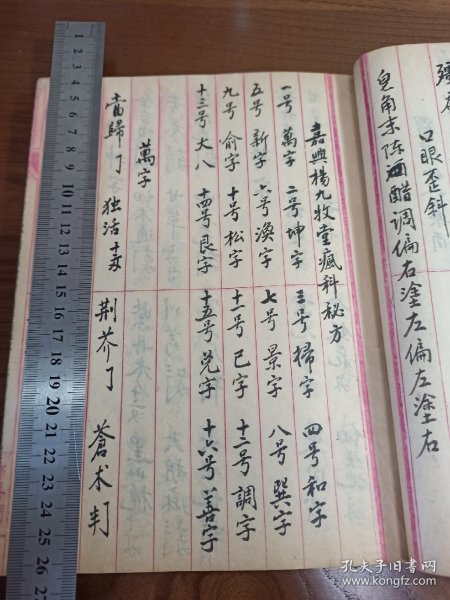 口眼歪斜
皂角末陈醋调偏右塗左偏左塗右
嘉興楊九牧堂瘋科秘方
一号萬字 二号坤字 三号掃字 四号和字
五号新字 六号渙字 七号景字 八号巽字
九号俞字 十号松字 十一号已字 十二号調字
十三号大八 十四号艮字 十五号兑字 十六号善字
萬字
當歸 独活 荆芥 蒼术
1 2 3 4 5 6 7 8 9 10 11 12 13 14 15 16 17 18 19 20 21 22 23 24 25 26 27
孔夫子旧书网
www.kongfz.com